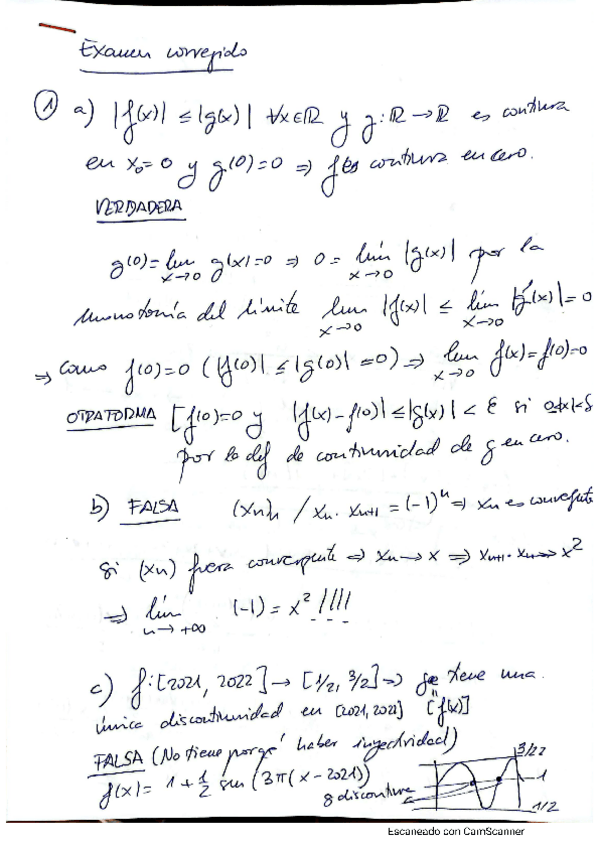 Examen corregido
① a) |f(x)| ≤ |g(x)| ∀x∈ℝ y g: ℝ→ℝ es continua
en x₀=0 y g(0)=0 ⇒ f es continua en cero.
VERDADERA
g(0)= lim x→0 g(x)=0 ⇒ 0 = lim x→0 |g(x)| por la
monotonía del límite lim x→0 |f(x)| ≤ lim x→0 |g(x)| = 0
⇒ como f(0)=0 (|f(0)| ≤ |g(0)| =0) ⇒ lim x→0 f(x)=f(0)=0
OTRA FORMA [f(0)=0 y |f(x)-f(0)| ≤ |g(x)| < ε si 0≤|x|<δ
por la def de continuidad de g en cero.
b) FALSA (xn)n / xn · xn+1 = (-1)ⁿ ⇒ xn es convergente
si (xn) fuera convergente ⇒ xn → x ⇒ xn+1 · xn → x²
⇒ lim n→+∞ (-1) = x² !!!!
c) f: [2021, 2022] → [1/2, 3/2] ⇒ g tiene una
única discontinuidad en [2021, 2022] [f(x)]
FALSA (No tiene porqé haber inyectividad)
f(x)= 1 + 1/2 sen (3π(x-2021))
3/2
1
g discontinua
1/2
Escaneado con CamScanner